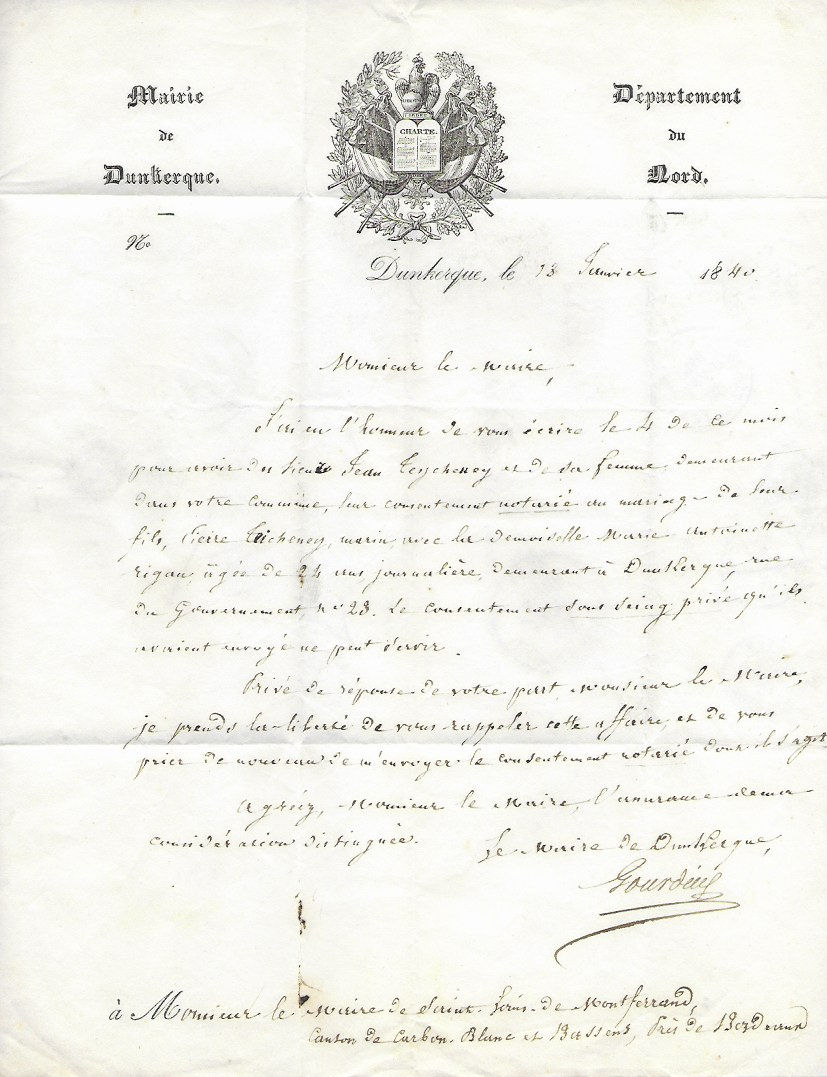 Mairie
de
Dunkerque.
Département
du
Nord.
CHARTE.
No
Dunkerque, le 13 Janvier 1840
Monsieur le Maire,
J'ai eu l'honneur de vous écrire le 4 de ce mois
pour avoir des sieur Jean et de sa femme, demeurant
dans votre commune, leur consentement notarié au mariage de leur
fils, Pierre marin, avec la demoiselle Marie Antoinette
rigau, âgée de 24 ans journalière, demeurant à Dunkerque, rue
du Gouvernement no 23. Le consentement sous seing privé qu'ils
avaient envoyé ne peut servir.
Privé de réponse de votre part Monsieur le Maire,
je prends la liberté de vous rappeler cette affaire, et de vous
prier de nouveau de m'envoyer le consentement notarié dont il s'agit
Agréez, Monsieur le Maire, l'assurance de ma
considération distinguée.
Le Maire de Dunkerque,
Gourdin
à Monsieur le Maire de Saint Louis de Montferrand,
Canton de Carbon Blanc et Bassens, Près de Bordeaux